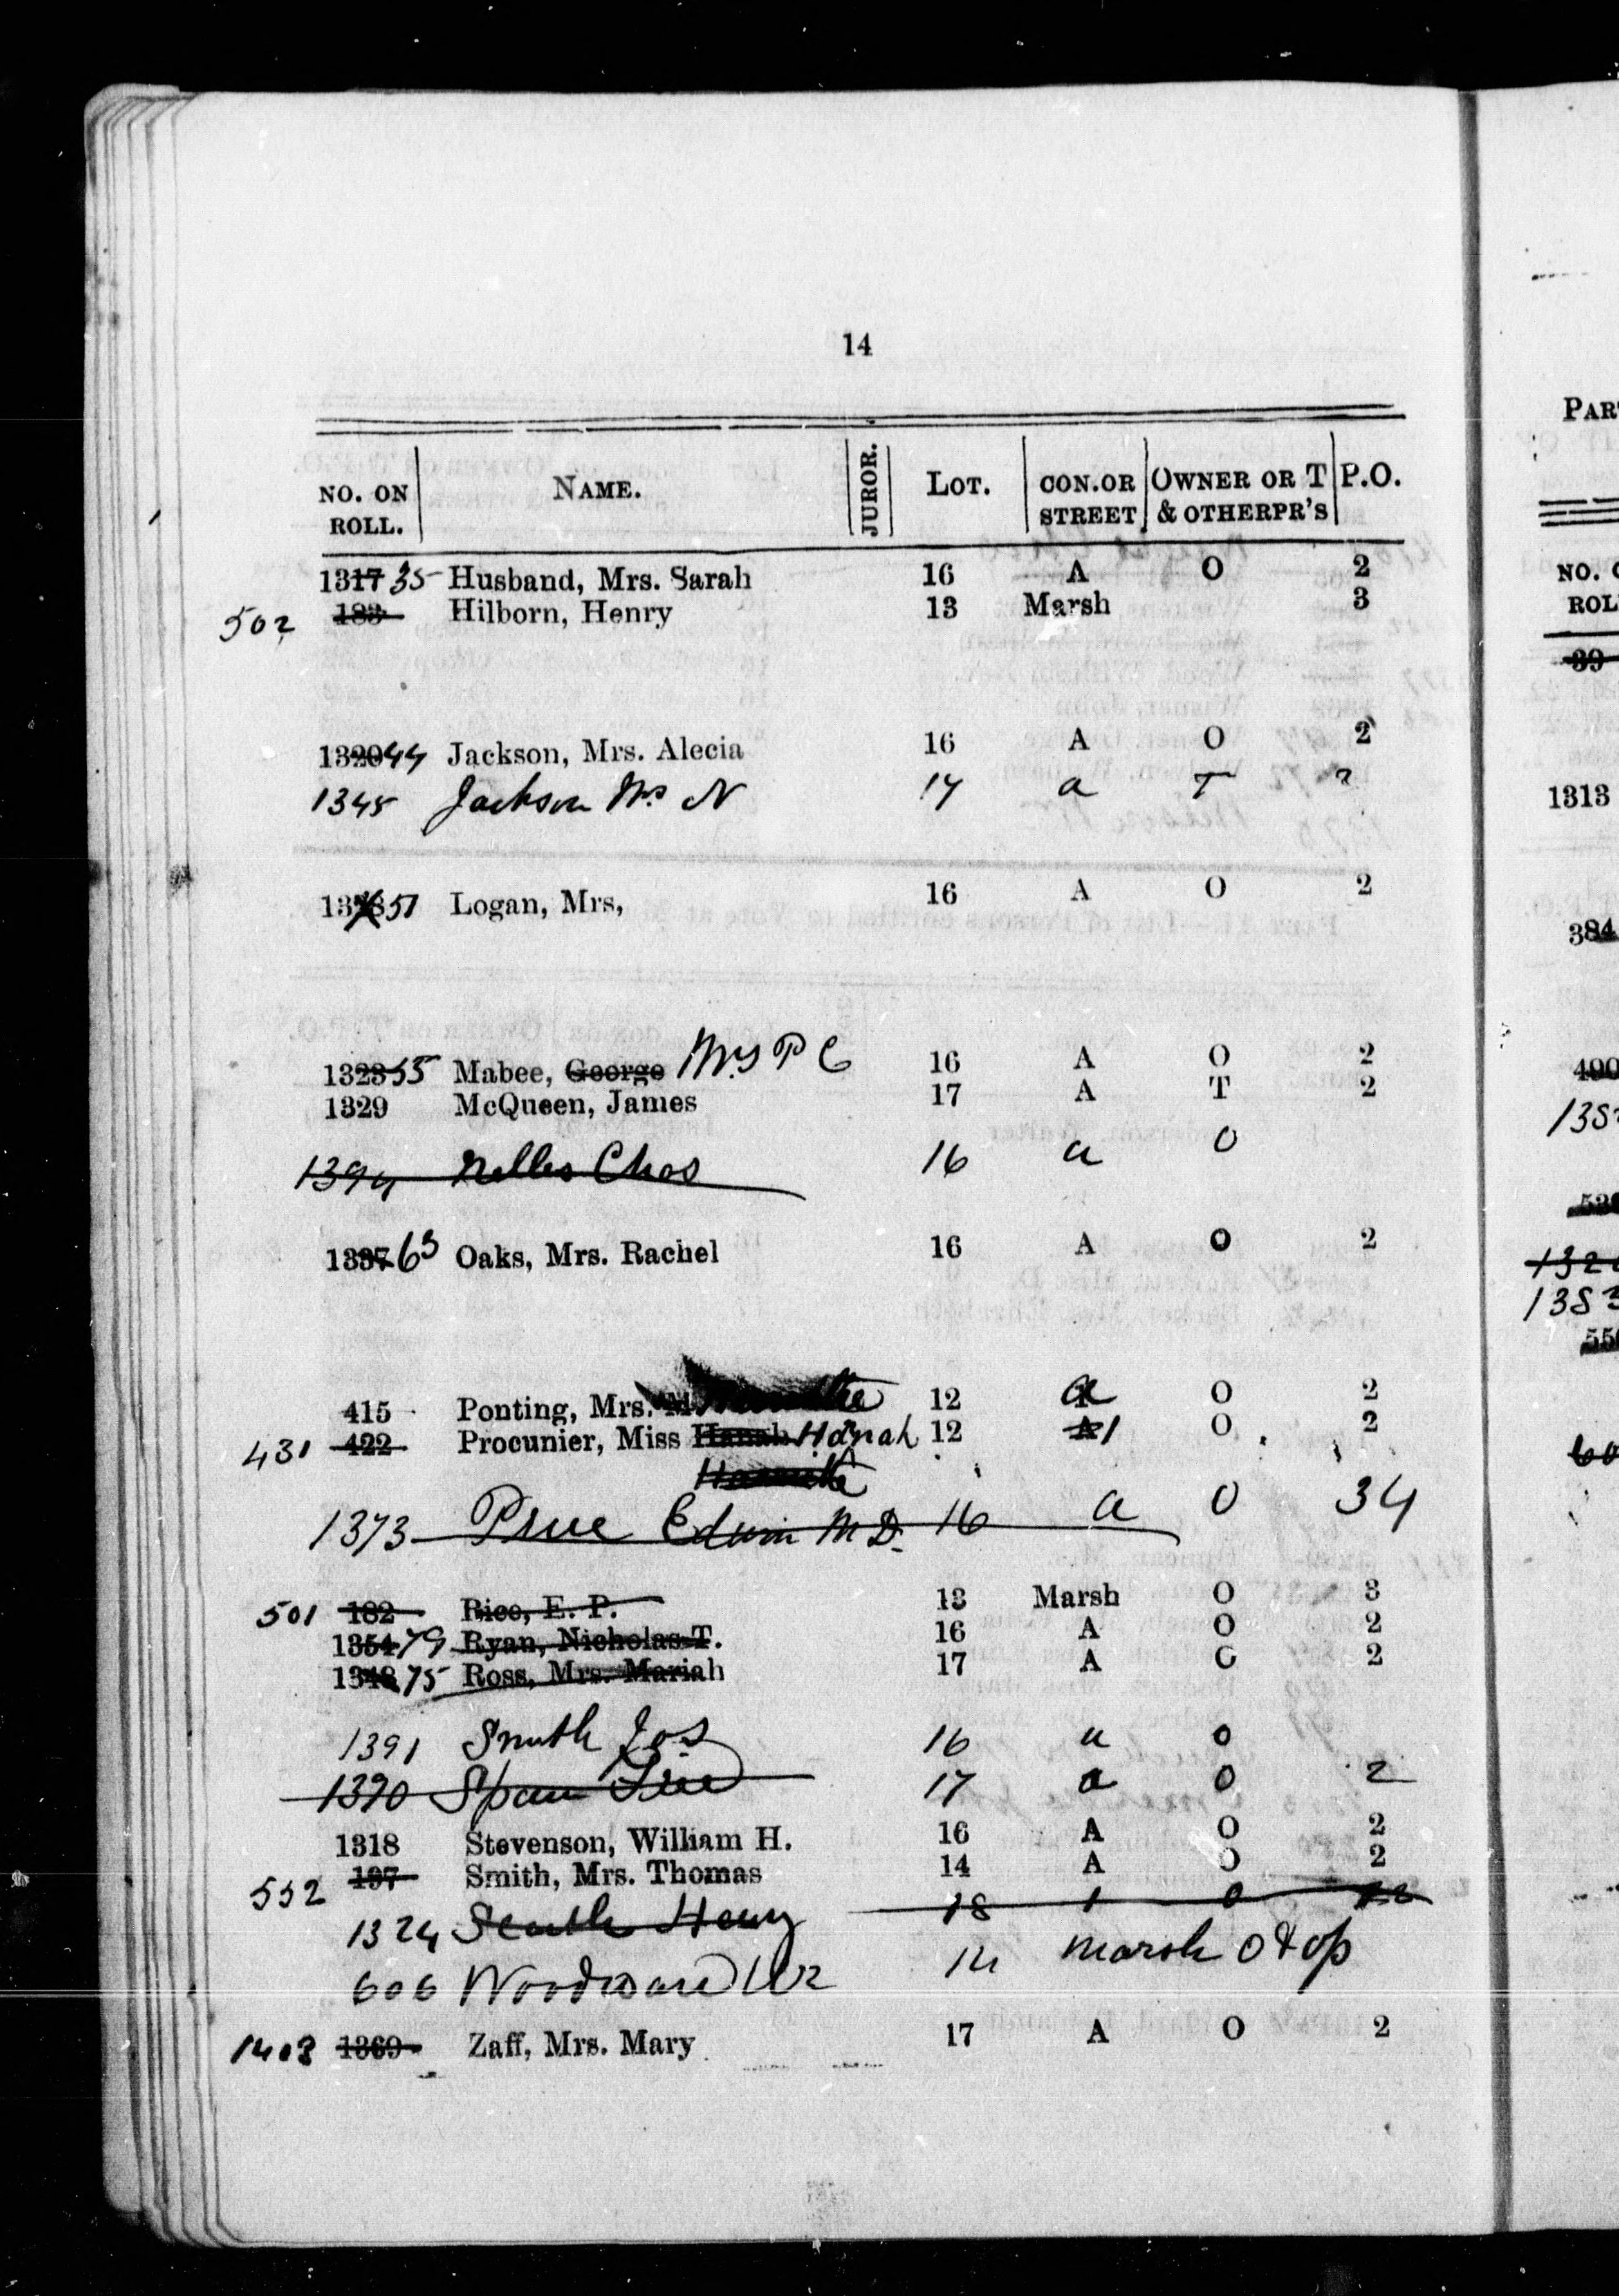 14
NO. ON ROLL. NAME. JUROR. LOT. CON. OR STREET OWNER OR T & OTHER PR'S P.O.
131735 Husband, Mrs. Sarah 16 A O 2
502 183 Hilborn, Henry 13 Marsh 3
132044 Jackson, Mrs. Alecia 16 A O 2
1345 Jackson Mrs N 17 a T 2
51 Logan, Mrs, 16 A O 2
132855 Mabee, George Mrs P C 16 A O 2
1329 McQueen, James 17 A T 2
1394 Nelles Chas 16 a O
133763 Oaks, Mrs. Rachel 16 A O 2
415 Ponting, Mrs. M. 12 a O 2
431 422 Procunier, Miss Hanah Hanah 12 A 1 O 2
1373 Edwin M D. 16 a O 34
501 182 Rice, E. P. 13 Marsh O 3
135479 Ryan, Nicholas T. 16 A O 2
134875 Ross, Mrs. Mariah 17 A O 2
1391 Smith Jos 16 a O
1390 17 a O 2
1318 Stevenson, William H. 16 A O 2
552 197 Smith, Mrs. Thomas 14 A O 2
1324 Henry 18 1 O
606 Woodward 14 Marsh O & op
1403 1369 Zaff, Mrs. Mary 17 A O 2
PAR
NO. O
ROL
39
1313
384
400
138
132
1383
55
60